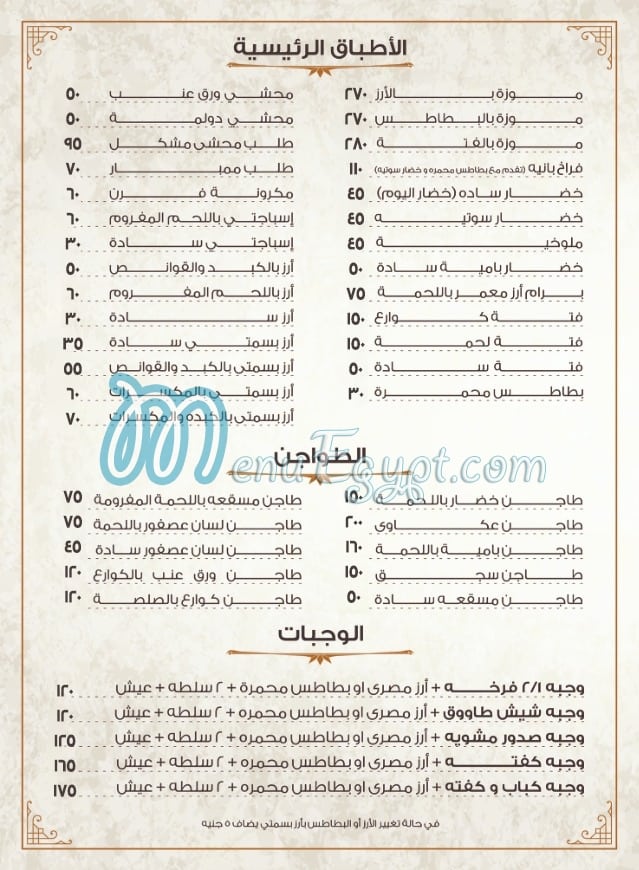 الأطباق الرئيسية
موزة بالأرز ٢٧٠
موزة بالبطاطس ٢٧٠
موزة بالفتة ٢٨٠
فراخ بانيه (تقدم مع بطاطس محمره و خضار سوتيه) ١١٠
خضار ساده (خضار اليوم) ٤٥
خضار سوتيه ٤٥
ملوخية ٤٥
خضار بامية سادة ٥٠
برام أرز معمر باللحمة ٧٥
فتة كوارع ١٥٠
فتة لحمة ١٥٠
فتة سادة ٥٠
بطاطس محمرة ٣٠
محشي ورق عنب ٥٠
محشي دولمة ٥٠
طلب محشي مشكل ٩٥
طلب ممبار ٧٠
مكرونة فرن ٦٠
إسباجتي باللحم المفروم ٦٠
إسباجتي سادة ٣٠
أرز بالكبد والقوانص ٥٠
أرز باللحم المفروم ٦٠
أرز سادة ٣٠
أرز بسمتي سادة ٣٥
أرز بسمتى بالكبد والقوانص ٥٥
أرز بسمتي بالمكسرات ٦٠
أرز بسمتى بالكبده والمكسرات ٧٠
MenuEgypt.com
الطواجن
طاجن خضار باللحمة ١٥٠
طاجن عكاوى ٢٠٠
طاجن بامية باللحمة ١٦٠
طاجن سجق ١٥٠
طاجن مسقعه سادة ٥٠
طاجن مسقعه باللحمة المفرومة ٧٥
طاجن لسان عصفور باللحمة ٧٥
طاجن لسان عصفور سادة ٤٥
طاجن ورق عنب بالكوارع ١٢٠
طاجن كوارع بالصلصة ١٢٠
الوجبات
وجبه ٢/١ فرخه + أرز مصرى او بطاطس محمرة + ٢ سلطه + عيش ١٢٠
وجبه شيش طاووق + أرز مصرى او بطاطس محمره + ٢ سلطه + عيش ١٢٠
وجبه صدور مشويه + أرز مصرى او بطاطس محمره + ٢ سلطه + عيش ١٢٥
وجبه كفته + أرز مصرى او بطاطس محمره + ٢ سلطه + عيش ١٦٥
وجبه كباب و كفته + أرز مصرى او بطاطس محمره + ٢ سلطه + عيش ١٧٥
في حالة تغيير الأرز أو البطاطس بأرز بسمتي يضاف ٥ جنيه